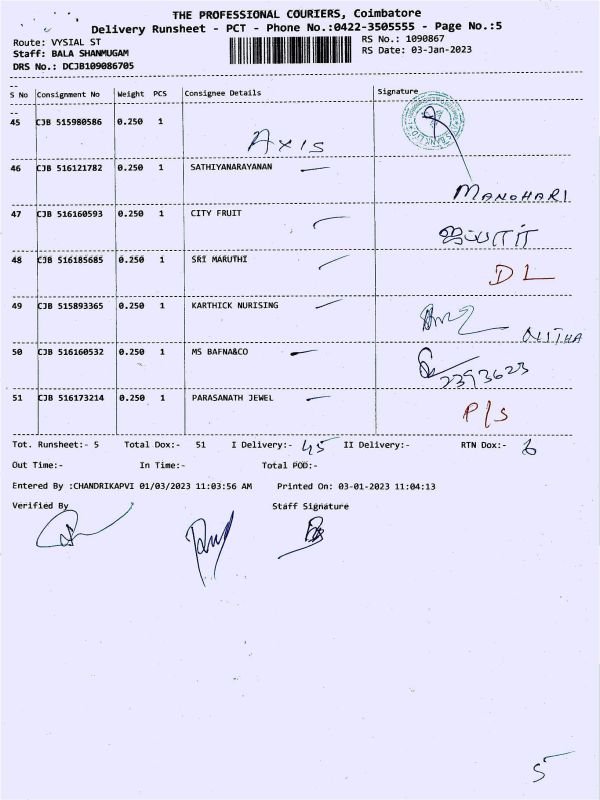 THE PROFESSIONAL COURIERS, Coimbatore
Delivery Runsheet - PCT - Phone No.:0422-3505555 - Page No.:5
Route: VYSIAL ST
RS No.: 1090867
Staff: BALA SHANMUGAM
RS Date: 03-Jan-2023
DRS No.: DCJB109086705
S No Consignment No Weight PCS Consignee Details Signature
45 CJB 515980586 0.250 1
Axis
46 CJB 516121782 0.250 1 SATHIYANARAYANAN
MANOHARI
47 CJB 516160593 0.250 1 CITY FRUIT
48 CJB 516185685 0.250 1 SRI MARUTHI
DL
49 CJB 515893365 0.250 1 KARTHICK NURISING
50 CJB 516160532 0.250 1 MS BAFNA&CO
2393623
51 CJB 516173214 0.250 1 PARASANATH JEWEL
P/S
Tot. Runsheet:- 5 Total Dox:- 51 I Delivery:- 45 II Delivery:- RTN Dox:- 6
Out Time:- In Time:- Total POD:-
Entered By :CHANDRIKAPVI 01/03/2023 11:03:56 AM Printed On: 03-01-2023 11:04:13
Verified By Staff Signature
5